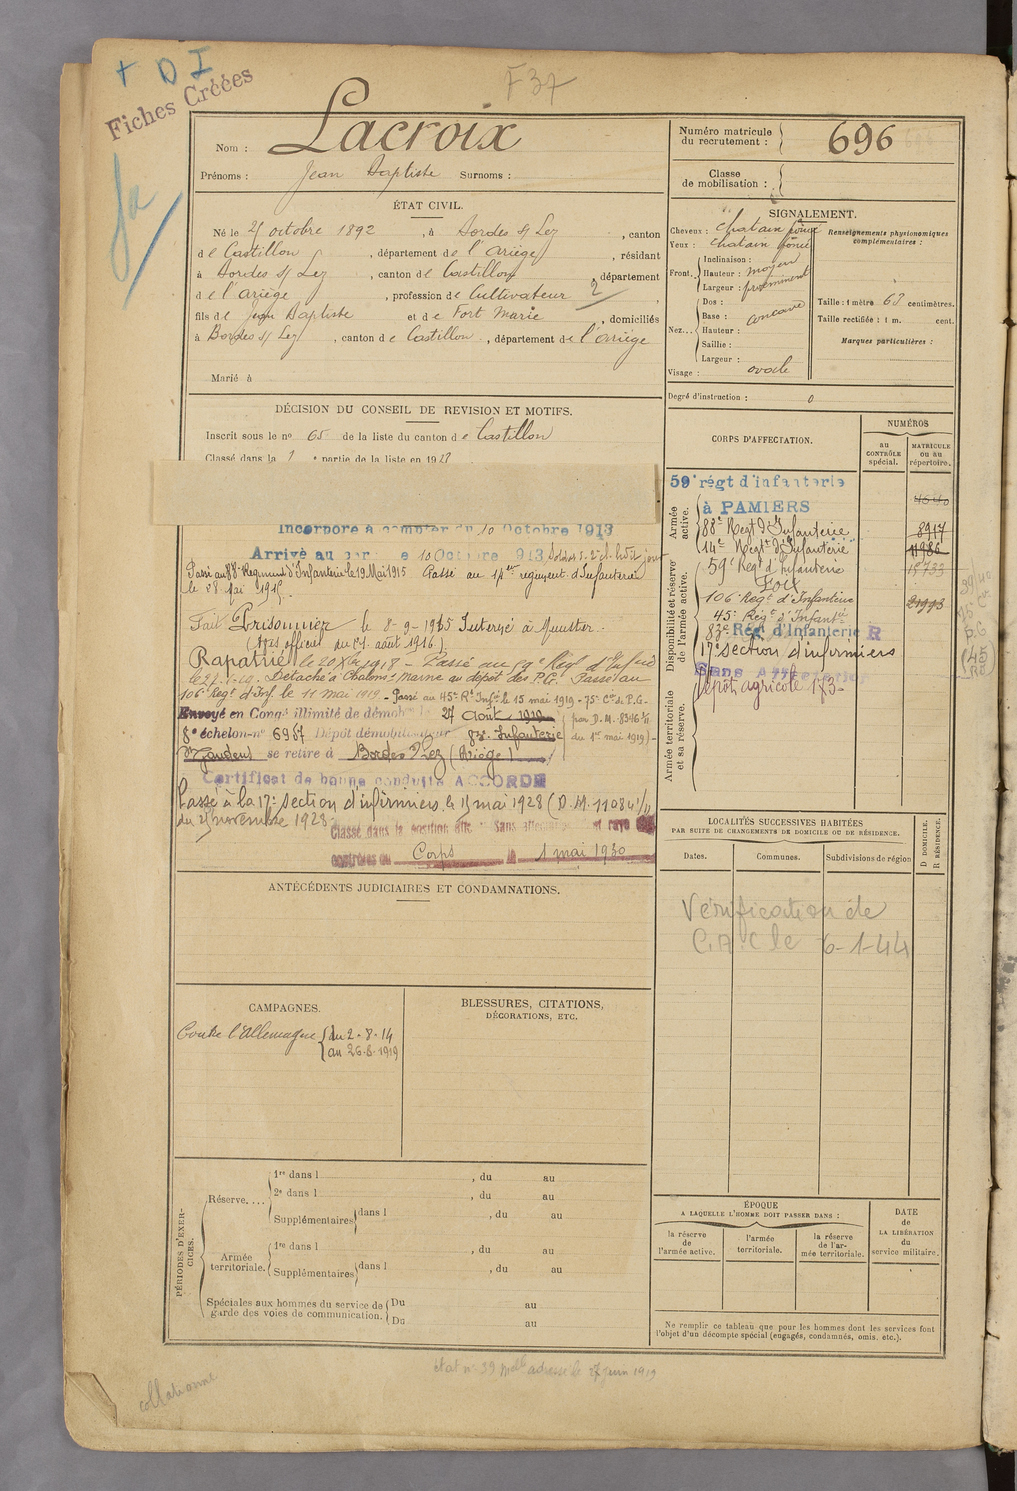 + D I
Fiches Créées
F 37
Nom : Lacroix
Prénoms : Jean Baptiste Surnoms :
ÉTAT CIVIL.
Né le 25 octobre 1892, à Bordes s/ Lez, canton
de Castillon, département de l'Ariège, résidant
à Bordes s/ Lez, canton de Castillon, département
de l'Ariège, profession de Cultivateur 2,
fils de Jean Baptiste et de Fort Marie, domiciliés
à Bordes s/ Lez, canton de Castillon, département de l'Ariège
Marié à
DÉCISION DU CONSEIL DE REVISION ET MOTIFS.
Inscrit sous le no 65 de la liste du canton de Castillon
Classé dans la 1 e partie de la liste en 191
Incorporé à compter du 10 Octobre 1913
Arrivé au le 10 Octobre 1913 Soldat de 2e cl. ledit jour
Passé au 88e Regiment d'Infanterie le 19 Mai 1915 Passé au 14eme regiment d'Infanterie
le 28 Mai 1915.
Fait Prisonnier le 8-9-1915 Interné à Munster.
(Avis officiel du août 1916)
Rapatrié le 20 Xbre 1918 - Passé au 59e Régt d'Infrie
le 21-1-19. Détaché à Chalons s/ Marne au dépôt des P.G. Passé au
106e Régt d'Inf. le 11 mai 1919 - Passé au 45e Rt Infie le 15 mai 1919 - 75e Cie de P.G.-
Envoyé en Congé illimité de démob le 27 Août 1919 (par D.M. 8346 1/11
8e échelon no 6967 Dépôt démobilisateur 83e Infanterie du 1er mai 1919)-
se retire à Bordes s/ Lez (Ariège)
Certificat de bonne conduite ACCORDÉ
Passé à la 17e section d'infirmiers, le 15 mai 1928 (D.M. 11084 1/11
du 25 novembre 1928.
Classé dans la position dite " Sans affectation et rayé des
contrôles du Corps le 1 mai 1930
ANTÉCÉDENTS JUDICIAIRES ET CONDAMNATIONS.
CAMPAGNES.
Contre l'Allemagne du 2-8-14
au 26-8-1919
BLESSURES, CITATIONS,
DÉCORATIONS, ETC.
PÉRIODES D'EXERCICES.
Réserve....
1re dans l , du au
2e dans l , du au
Supplémentaires dans l , du au
Armée territoriale.
1re dans l , du au
Supplémentaires dans l , du au
Spéciales aux hommes du service de garde des voies de communication.
Du au
Du au
Numéro matricule
du recrutement : 696
Classe
de mobilisation :
SIGNALEMENT.
Cheveux : chatain foncé
Yeux : chatain foncé
Front.
Inclinaison :
Hauteur : moyen
Largeur : proéminent
Nez...
Dos :
Base : concave
Hauteur :
Saillie :
Largeur :
Visage : ovale
Renseignements physionomiques
complémentaires :
Taille : 1 mètre 63 centimètres.
Taille rectifiée : 1 m. cent.
Marques particulières :
Degré d'instruction : 0
CORPS D'AFFECTATION.
NUMÉROS
au CONTRÔLE spécial.
MATRICULE ou au répertoire.
Armée active.
59e régt d'infanterie
à PAMIERS
88e Régt d'Infanterie 8917
14e Régt d'Infanterie 11986
Disponibilité et réserve de l'armée active.
59e Régt d'Infanterie 15733
Foix
106e Régt d'Infanterie 21993
45e Régt d'Infantie
83e Rég. d'Infanterie R
17e section d'infirmiers
Sans Affectation
Dépôt agricole 173-
Armée territoriale et sa réserve.
LOCALITÉS SUCCESSIVES HABITÉES
PAR SUITE DE CHANGEMENTS DE DOMICILE OU DE RÉSIDENCE.
Dates.
Communes.
Subdivisions de région
D DOMICILE.
R RÉSIDENCE.
Vérification de
C.A.C le 6-1-44
ÉPOQUE
A LAQUELLE L'HOMME DOIT PASSER DANS :
la réserve de l'armée active.
l'armée territoriale.
la réserve de l'armée territoriale.
DATE
de
LA LIBÉRATION
du
service militaire.
Ne remplir ce tableau que pour les hommes dont les services font
l'objet d'un décompte spécial (engagés, condamnés, omis, etc.).
état no 39 adressé le 27 juin 1919
collationné